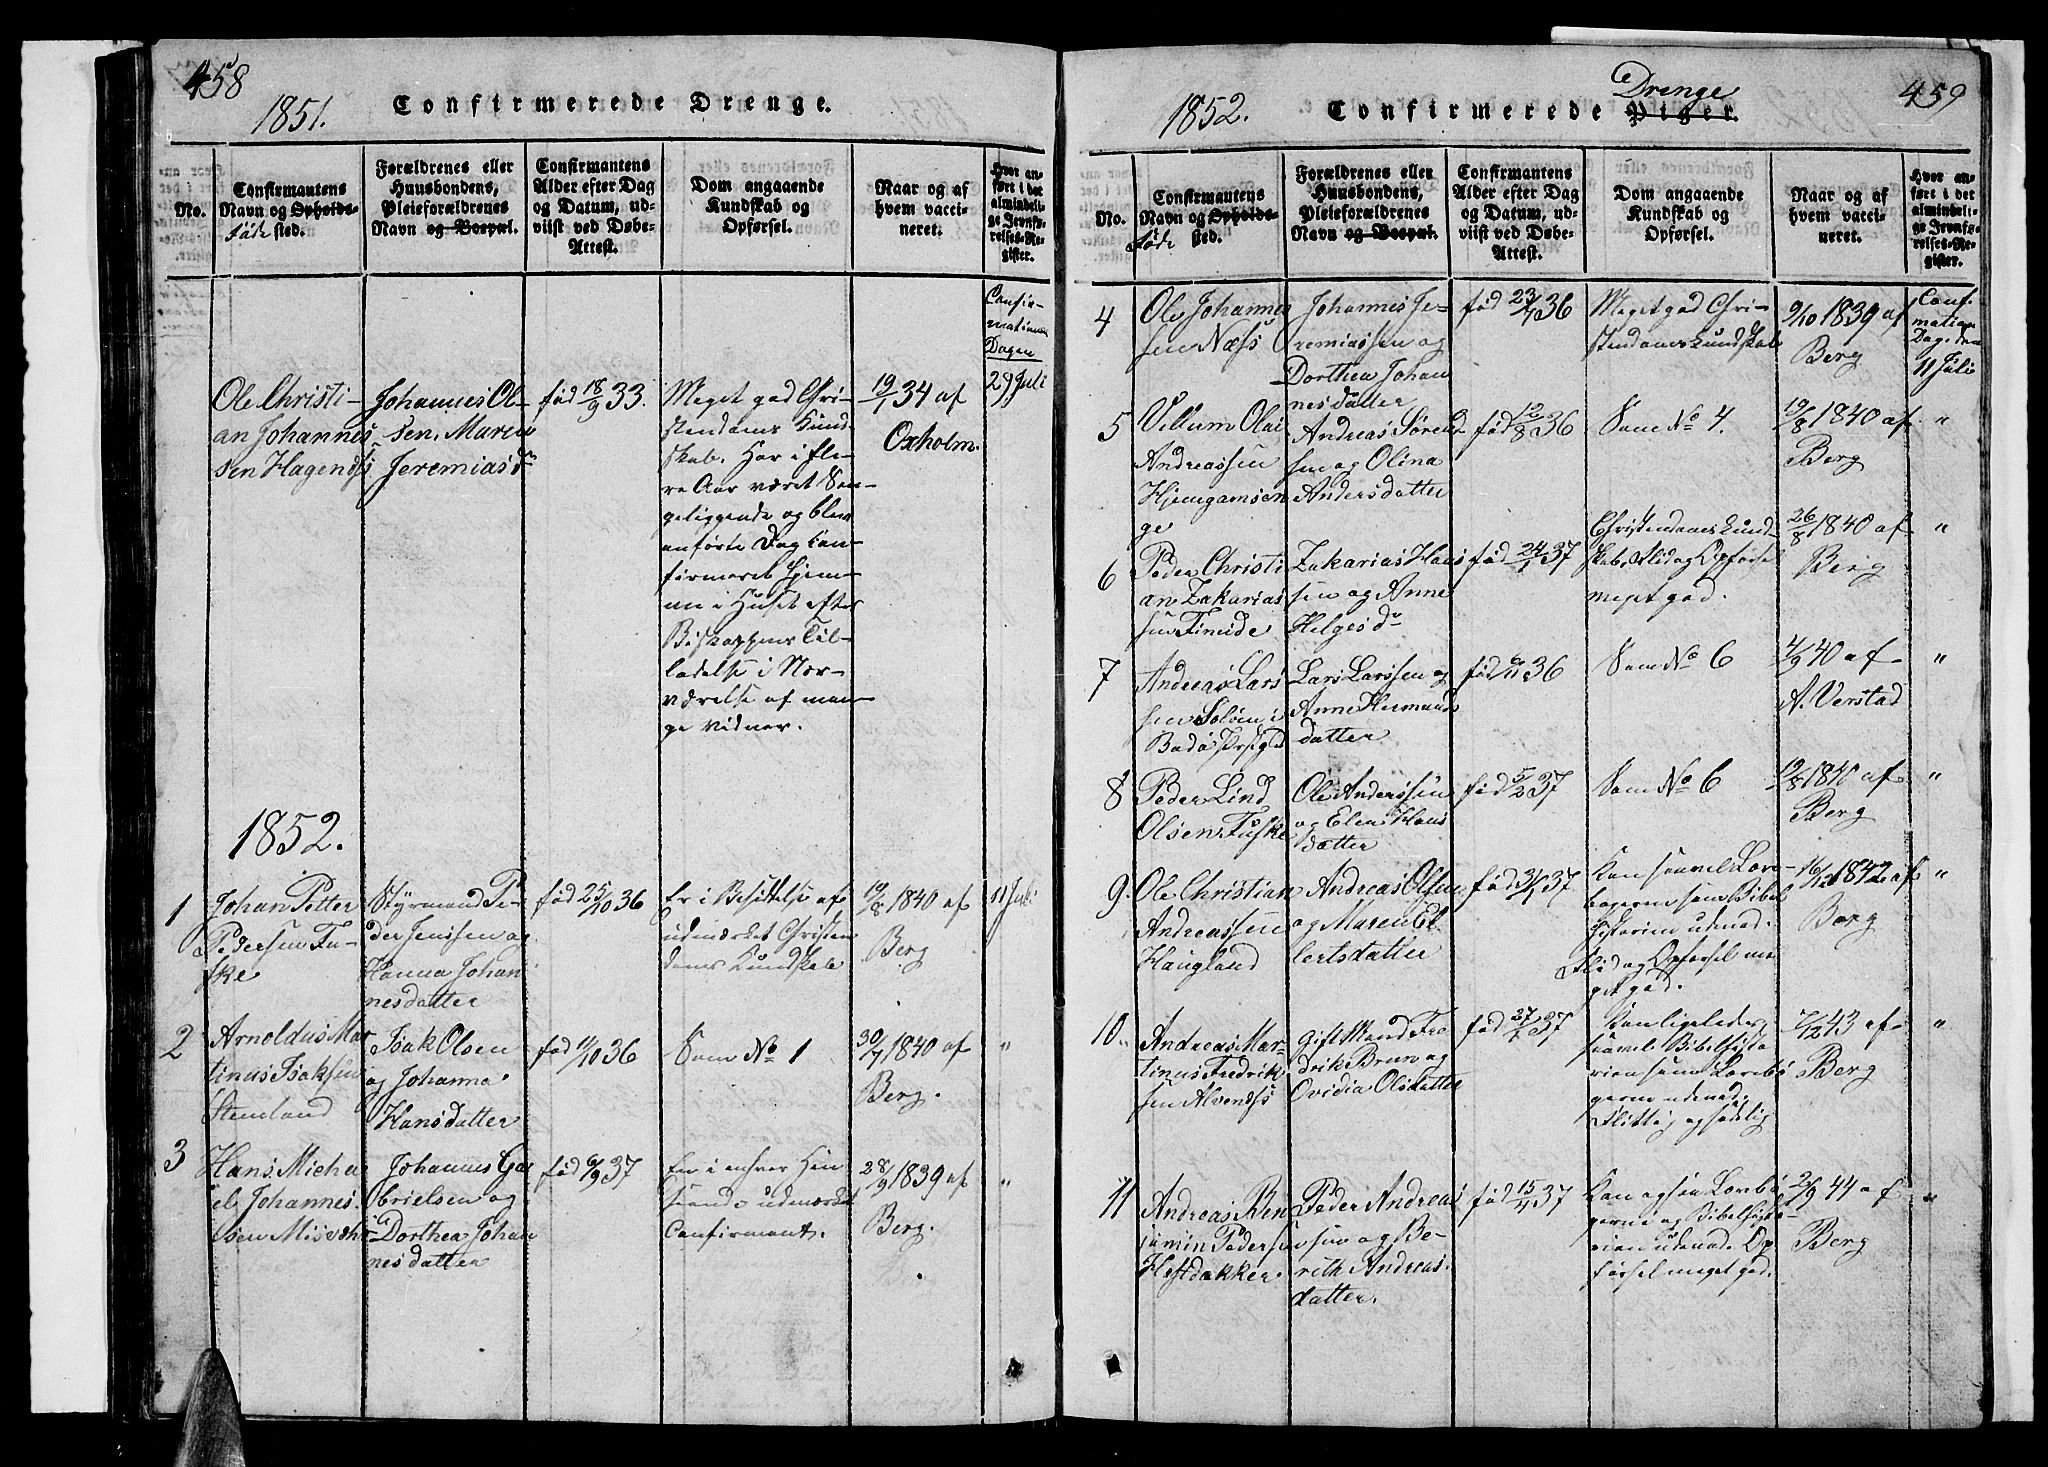 458
1851. Confirmerede Drenge.
No.
Confirmantens
Navn og Opholds-
Føde sted.
Forældrenes eller
Huusbondens,
Pleieforældrenes
Navn og Boepæl.
Confirmantens
Alder efter Dag
og Datum, ud-
viist ved Døbe-
Attest.
Dom angaaende
Kundskab og
Opførsel.
Naar og af
hvem vacci-
neret.
Hvor an-
ført i det
almindeli-
ge Jevnfø-
relses-Re-
gister.
Confir-
mations
Dagen
Ole Christi-
an Johannes
sen Hagenæs
Johannes Ol-
sen. Maren
Jeremiasd
fød 18/9 33.
Meget god Chri-
stendoms Kund-
skab. Har i fle-
re Aar været Sen-
geliggende og blev
anførte Dag con-
firmeret hjem-
me i Huset efter
Biskoppens Til-
ladelse i Nær-
værelse af man-
ge Vidner.
19/1 34 af
Oxholm.
29 Juli
1852.
1
Johan Petter
Pedersen Fu-
ske
Styrmand Pe-
der Jenssen og
Hanna Johan
nesdatter
fød 25/10 36
Er i Besiddelse af
udmærket Christen
doms Kundskab
19/8 1840 af
Berg
11 Juli
2
Arnoldus Mar
tinus Isaksen
Stemland
Isak Olsen
og Johanna
Hansdatter
fød 11/10 36
Som No 1
30/7 1840 af
Berg.
"
3
Hans Micha
el Johannes
sen Misvær
Johannes Ga
brielsen og
Dorthea Johan
nesdatter
fød 6/9 37
En i enhver Hen
seende udmærket
Confirmant.
28/9 1839 af
Berg.
"
459
1852. Confirmerede Piger.
Drenge
No.
Confirmantens
Navn og Opholds-
Føde sted.
Forældrenes eller
Huusbondens,
Pleieforældrenes
Navn og Boepæl.
Confirmantens
Alder efter Dag
og Datum, ud-
viist ved Døbe-
Attest.
Dom angaaende
Kundskab og
Opførsel.
Naar og af
hvem vacci-
neret.
Hvor an-
ført i det
almindeli-
ge Jevnfø-
relses-Re-
gister.
Conf.
mations
Dag. den
11 Juli
4
Ole Johannes
sen Næss
Johannes Je-
remiassen og
Dorthea Johan
nesdatter
fød 23/10 36
Meget god Chri-
stendomskundskab
9/10 1839 af
Berg
5
Villum Olai
Andreassen
Hjemgamsen
ge
Andreas Sørend
sen og Olina
Andersdatter
fød 12/8 36
Som No 4.
19/8 1840 af
Berg
"
6
Peder Christi
an Zakarias
sen Fineide
Zakarias Hans
sen og Anne
Helgesd
fød 24/1 37
Christendomskund-
skab, Flid og Opførsel
meget god.
26/8 1840 af
Berg
"
7
Andreas Lars
sen Soløen i
Bodø Prstgd
Lars Larssen og
Anne Hermands
datter
fød 6/11 36
Som No 6
4/9 40 af
A. Verstad
"
8
Peder Lind
Olsen Fuske
Ole Anderssen
og Elen Hans
datter
fød 5/2 37
Som No 6
19/8 1840 af
Berg
"
9.
Ole Christian
Andreassen
Haugland
Andreas Olsen
og Maren El
lertsdatter
fød 31/1 37
Kan saavel Lære-
bøgerne som Bibel
historien udenad.
Flid og Opførsel me
get god.
16/12 1842 af
Berg
"
10
Andreas Mar-
tinus Fredrik
sen Alvenæs
Gift Mand Fre
drik Brun og
Ovidia Olsdatter
Kan ligeledes
saavel Bibelhisto
rien som Lærebø
gerne udenad.
Flittig og sædelig
7/12 43 af
Berg
"
11
Andreas Ben
jamin Peders
Hestdakker.
Peder Andreas
sen og Be-
reth Andreas-
datter.
fød 15/4 37
Kan ogsaa Lærebø
gerne og Bibelhisto-
rien udenad. Op
førsel meget god.
2/9 44 af
Berg
"